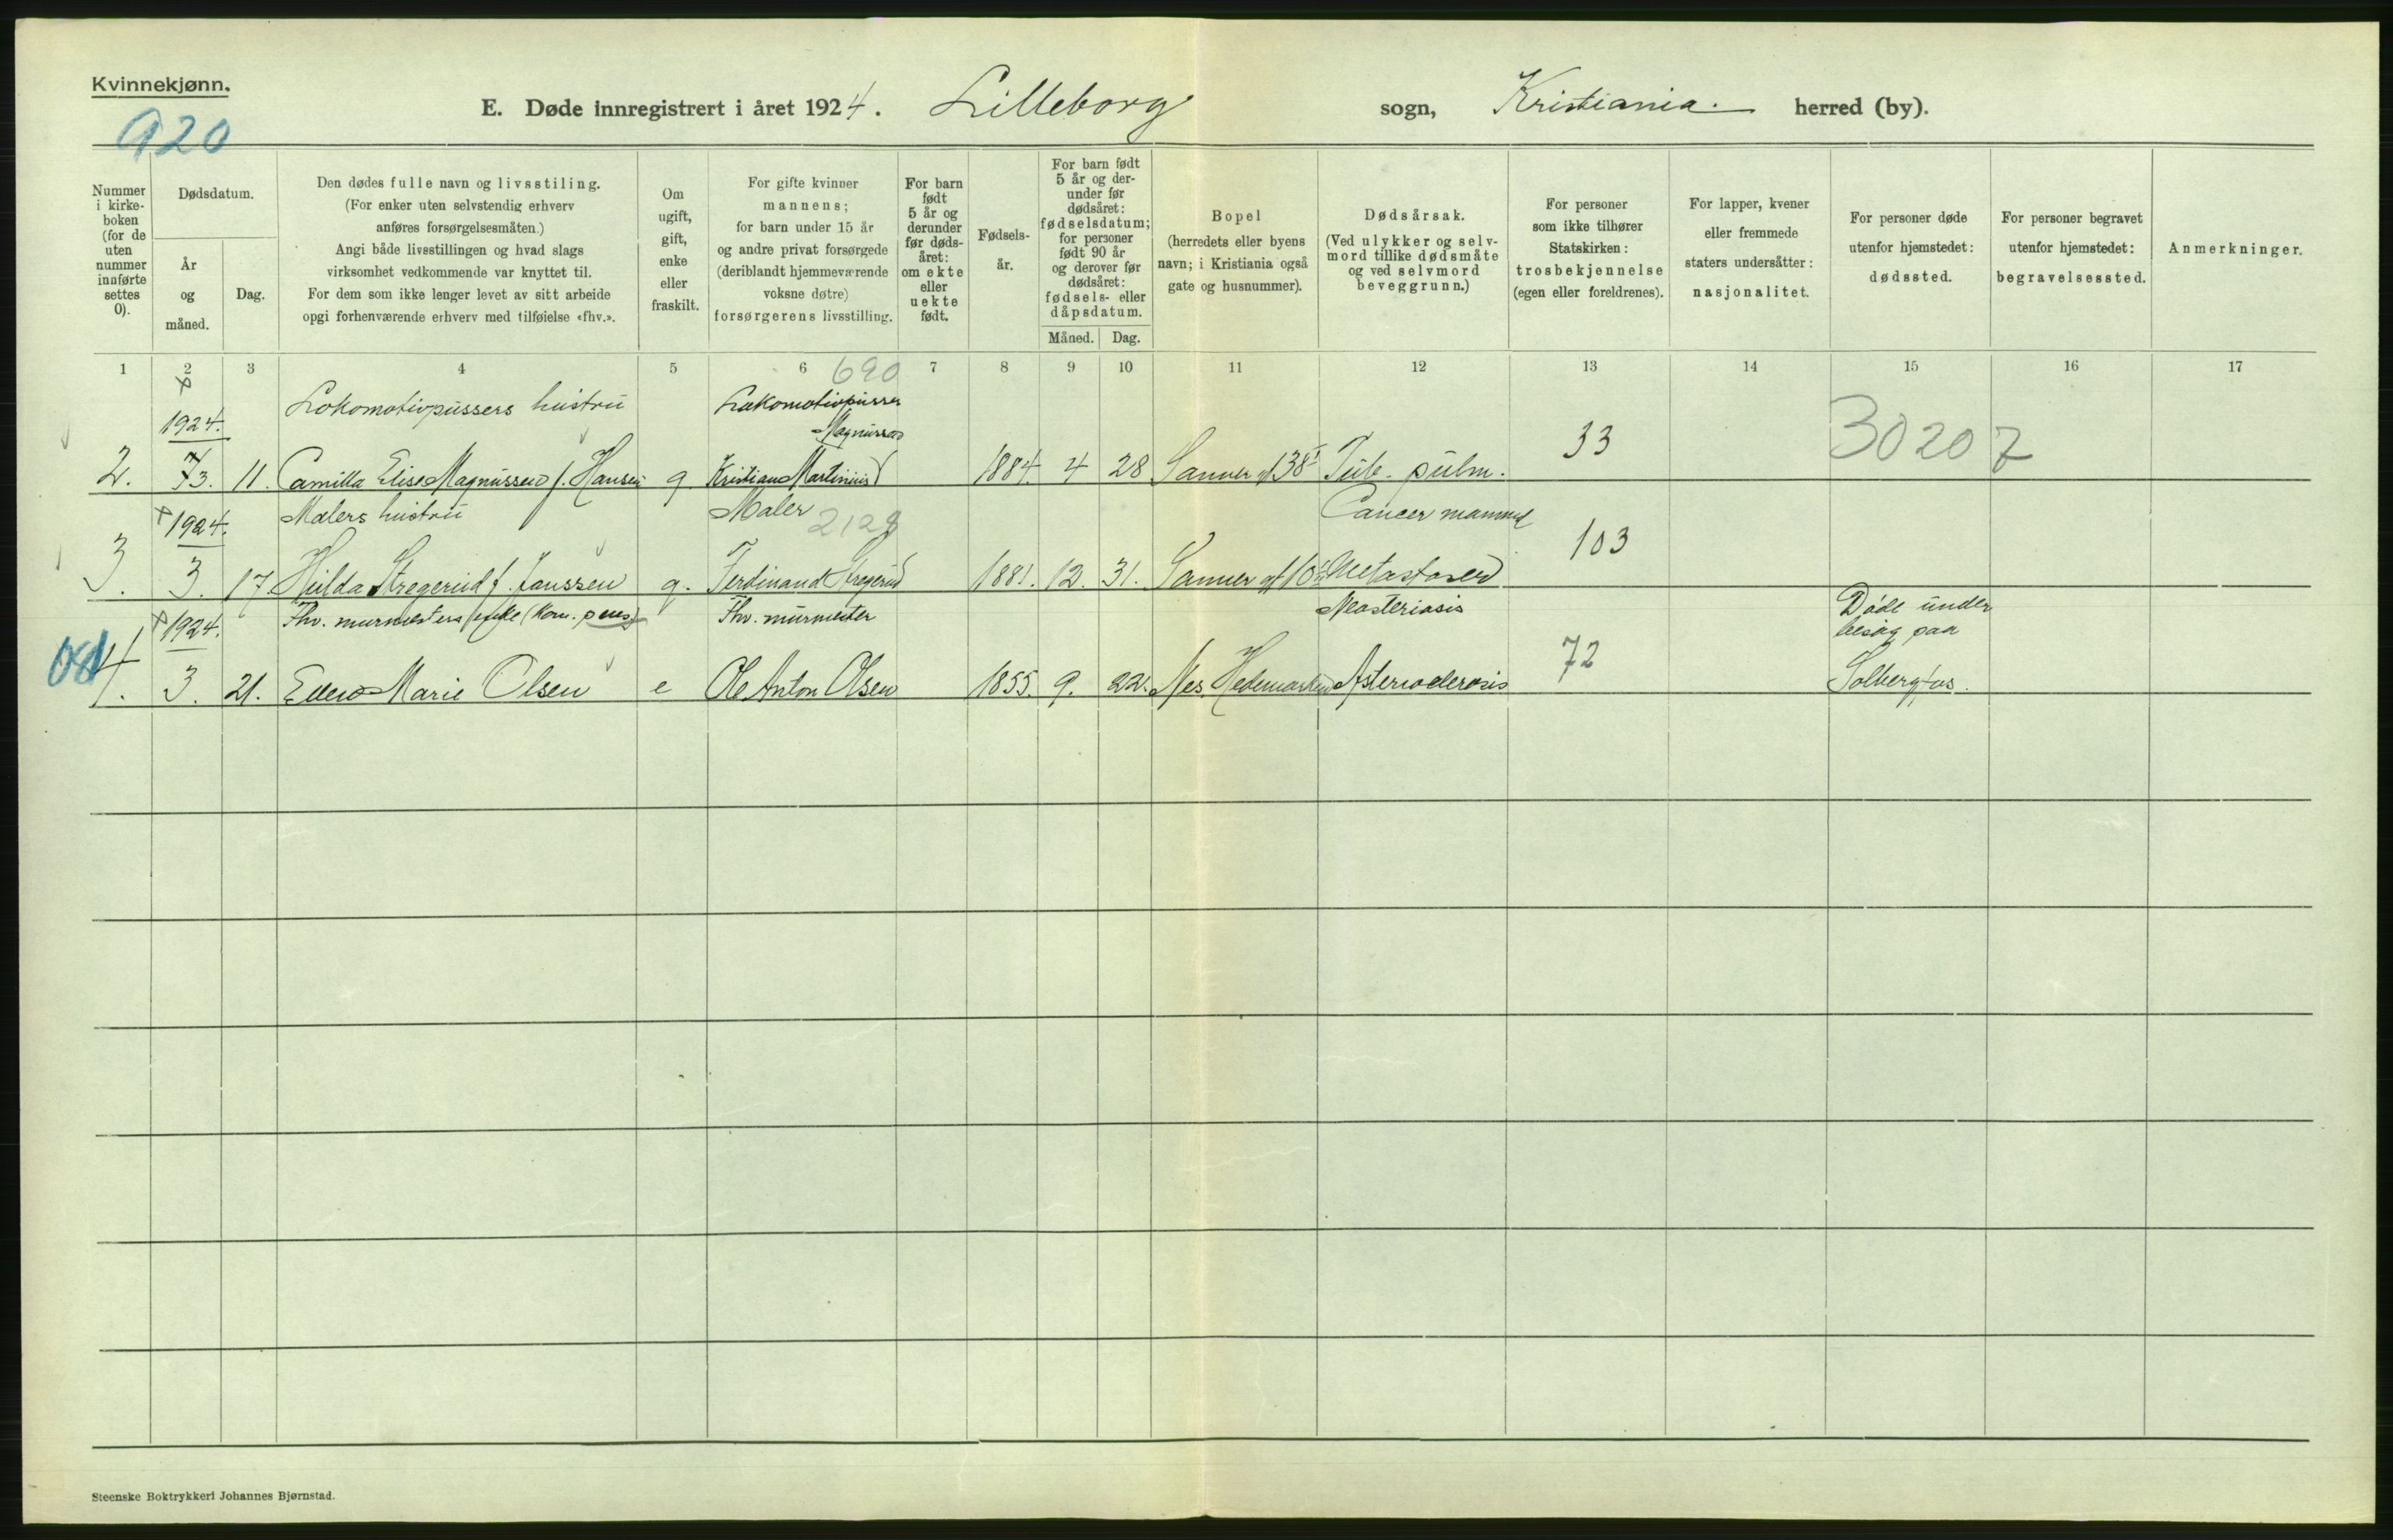 Kvinnekjønn.
920
E. Døde innregistrert i året 1924. Lilleborg sogn, Kristiania. herred (by).
Nummer i kirke-boken (for de uten nummer innførte settes 0).
Dødsdatum.
År og måned.
Dag.
Den dødes fulle navn og livsstiling.
(For enker uten selvstendig erhverv
anføres forsørgelsesmåten.)
Angi både livsstillingen og hvad slags
virksomhet vedkommende var knyttet til.
For dem som ikke lenger levet av sitt arbeide
opgi forhenværende erhverv med tilføielse «fhv.».
Om ugift, gift, enke eller fraskilt.
For gifte kvinner
mannens;
for barn under 15 år
og andre privat forsørgede
(deriblandt hjemmeværende
voksne døtre)
forsørgerens livsstilling.
For barn født 5 år og derunder før døds-året: om ekte eller uekte født.
Fødsels-år.
For barn født 5 år og der-under før dødsåret: fødselsdatum; for personer født 90 år og derover før dødsåret: fødsels- eller dåpsdatum.
Måned. Dag.
Bopel
(herredets eller byens
navn; i Kristiania også
gate og husnummer).
Dødsårsak.
(Ved ulykker og selv-
mord tillike dødsmåte
og ved selvmord
beveggrunn.)
For personer
som ikke tilhører
Statskirken:
trosbekjennelse
(egen eller foreldrenes).
For lapper, kvener
eller fremmede
staters undersåtter:
nasjonalitet.
For personer døde
utenfor hjemstedet:
dødssted.
For personer begravet
utenfor hjemstedet:
begravelsessted.
Anmerkninger.
1 2 3 4 5 6 7 8 9 10 11 12 13 14 15 16 17
690
Lokomotivpussers hustru Lokomotivpusser
1924. Magnussen
2. 3. 11. Camilla Elise Magnussen f. Hansen g. Kristian Martinius 1884. 4 28 Sanner gt 38 Tub. pulm. 33 30207
1924. Malers hustru Maler 2128 Cancer mammæ
3. 3. 17. Hilda Stregerud f. Janssen g. Ferdinand Stregerud 1881. 12. 31. Sanner gt 10 Metastaser 103
1924. Fhv. murmesters enke (Kom. pens) Fhv. murmester Døde under
besøg paa
4. 3. 21. Ellen Marie Olsen e Ole Anton Olsen 1855. 9. 22. Nes, Hedemarken 72 Solbergfos.
Steenske Boktrykkeri Johannes Bjørnstad.